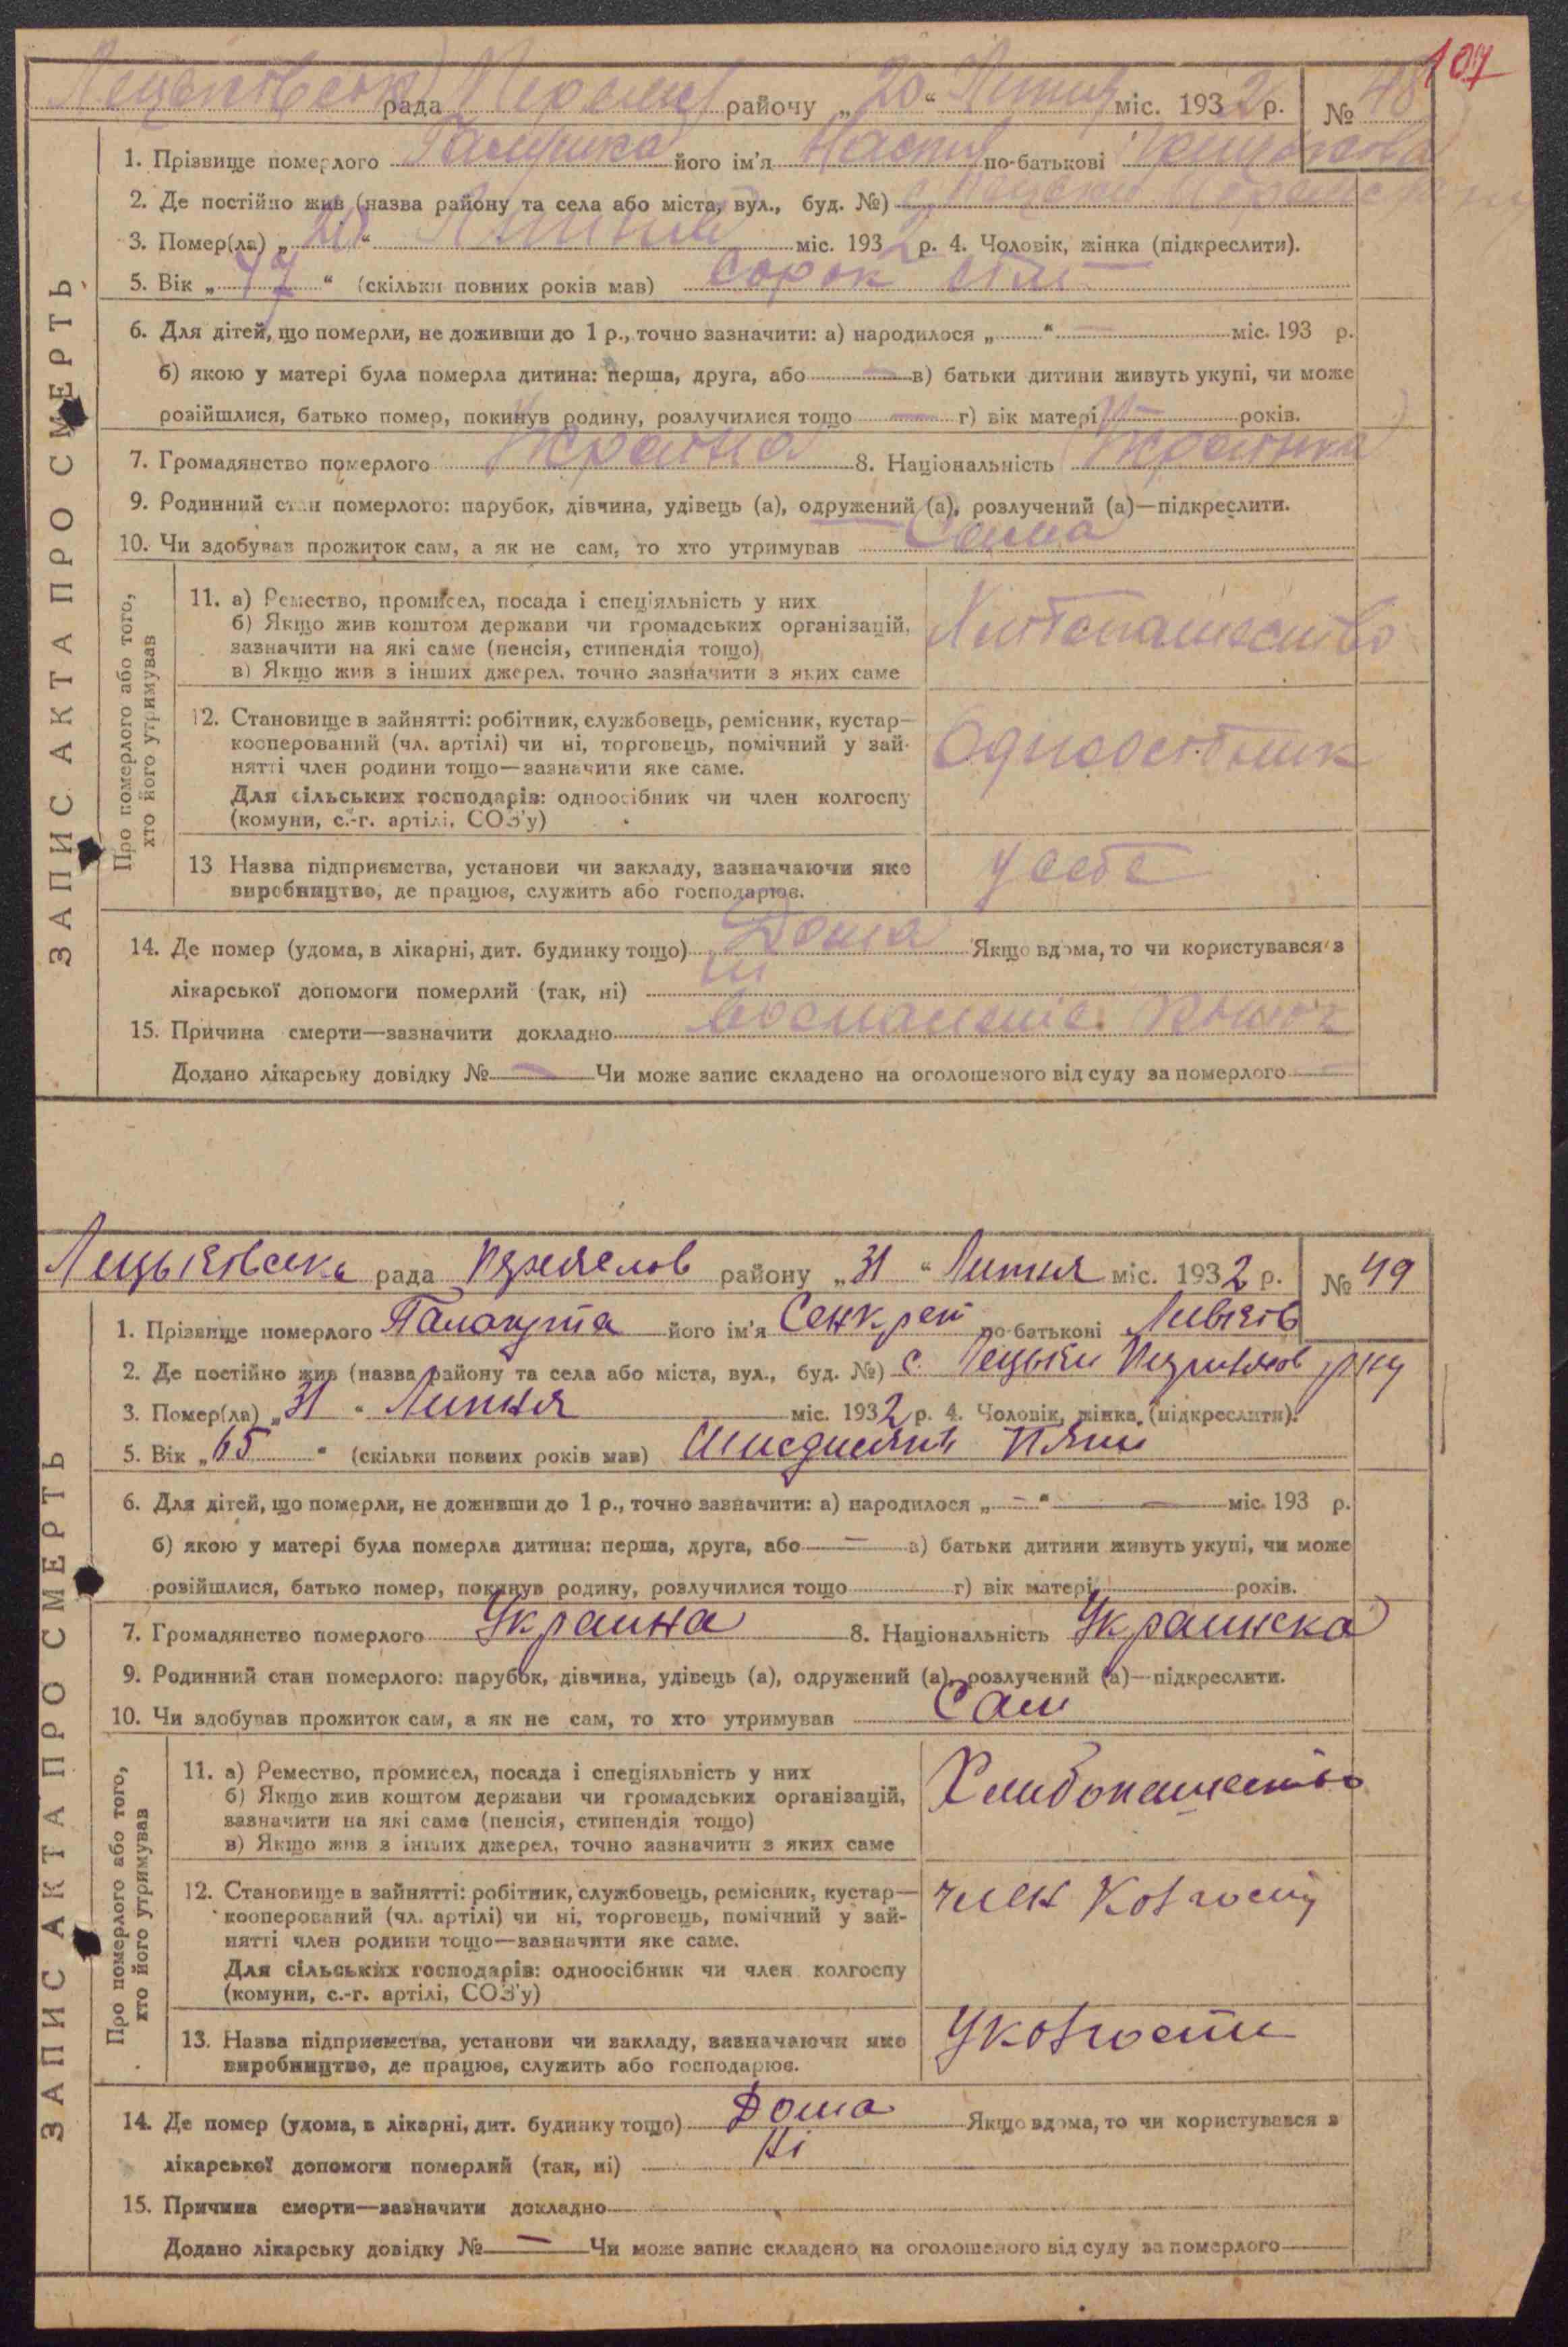 107
рада району „20“ міс. 1932 р. № 48
1. Прізвище померлого його ім'я Настя по-батькові
2. Де постійно жив (назва району та села або міста, вул., буд. №)
3. Помер(ла) „20“ Липня міс. 1932 р. 4. Чоловік, жінка (підкреслити).
5. Вік „47“ (скільки повних років мав) сорок сім
6. Для дітей, що померли, не доживши до 1 р., точно зазначити: а) народилося „ “ — міс. 193 р.
б) якою у матері була померла дитина: перша, друга, або — в) батьки дитини живуть укупі, чи може
розійшлися, батько помер, покинув родину, розлучилися тощо — г) вік матері — років.
7. Громадянство померлого Украина 8. Національність Украинка
9. Родинний стан померлого: парубок, дівчина, удівець (а), одружений (а), розлучений (а)—підкреслити.
10. Чи здобував прожиток сам, а як не сам, то хто утримував Сама
ЗАПИС АКТА ПРО СМЕРТЬ
Про померлого або того,
хто його утримував
11. а) Ремество, промисел, посада і спеціяльність у них
б) Якщо жив коштом держави чи громадських організацій,
зазначити на які саме (пенсія, стипендія тощо)
в) Якщо жив з інших джерел, точно зазначити з яких саме
12. Становище в зайнятті: робітник, службовець, ремісник, кустар—
кооперований (чл. артілі) чи ні, торговець, помічний у зай-
нятті член родини тощо—зазначити яке саме.
Для сільських господарів: одноосібник чи член колгоспу
(комуни, с.-г. артілі, СОЗ'у)
Одноосібник
13 Назва підприємства, установи чи закладу, зазначаючи яке
виробництво, де працює, служить або господарює.
у себе
14. Де помер (удома, в лікарні, дит. будинку тощо) Дома Якщо вдома, то чи користувався з
лікарської допомоги померлий (так, ні) ні
15. Причина смерти—зазначити докладно
Додано лікарську довідку № — Чи може запис складено на оголошеного від суду за померлого —
рада району „31“ Липня міс. 1932 р. № 49
1. Прізвище померлого Галагута його ім'я по-батькові
2. Де постійно жив (назва району та села або міста, вул., буд. №) с. Пецьки р-ну
3. Помер(ла) „31“ Липня міс. 1932 р. 4. Чоловік, жінка (підкреслити).
5. Вік „65“ (скільки повних років мав)
6. Для дітей, що померли, не доживши до 1 р., точно зазначити: а) народилося „—“ — міс. 193 р.
б) якою у матері була померла дитина: перша, друга, або — в) батьки дитини живуть укупі, чи може
розійшлися, батько помер, покинув родину, розлучилися тощо г) вік матері років.
7. Громадянство померлого Украина 8. Національність Украинска
9. Родинний стан померлого: парубок, дівчина, удівець (а), одружений (а), розлучений (а)—підкреслити.
10. Чи здобував прожиток сам, а як не сам, то хто утримував Сам
ЗАПИС АКТА ПРО СМЕРТЬ
Про померлого або того,
хто його утримував
11. а) Ремество, промисел, посада і спеціяльність у них
б) Якщо жив коштом держави чи громадських організацій,
зазначити на які саме (пенсія, стипендія тощо)
в) Якщо жив з інших джерел, точно зазначити з яких саме
Хлибопашество
12. Становище в зайнятті: робітник, службовець, ремісник, кустар—
кооперований (чл. артілі) чи ні, торговець, помічний у зай-
нятті член родини тощо—зазначити яке саме.
Для сільських господарів: одноосібник чи член колгоспу
(комуни, с.-г. артілі, СОЗ'у)
член Колгоспу
13. Назва підприємства, установи чи закладу, зазначаючи яке
виробництво, де працює, служить або господарює.
14. Де помер (удома, в лікарні, дит. будинку тощо) Дома Якщо вдома, то чи користувався з
лікарської допомоги померлий (так, ні) Ні
15. Причина смерти—зазначити докладно
Додано лікарську довідку № — Чи може запис складено на оголошеного від суду за померлого